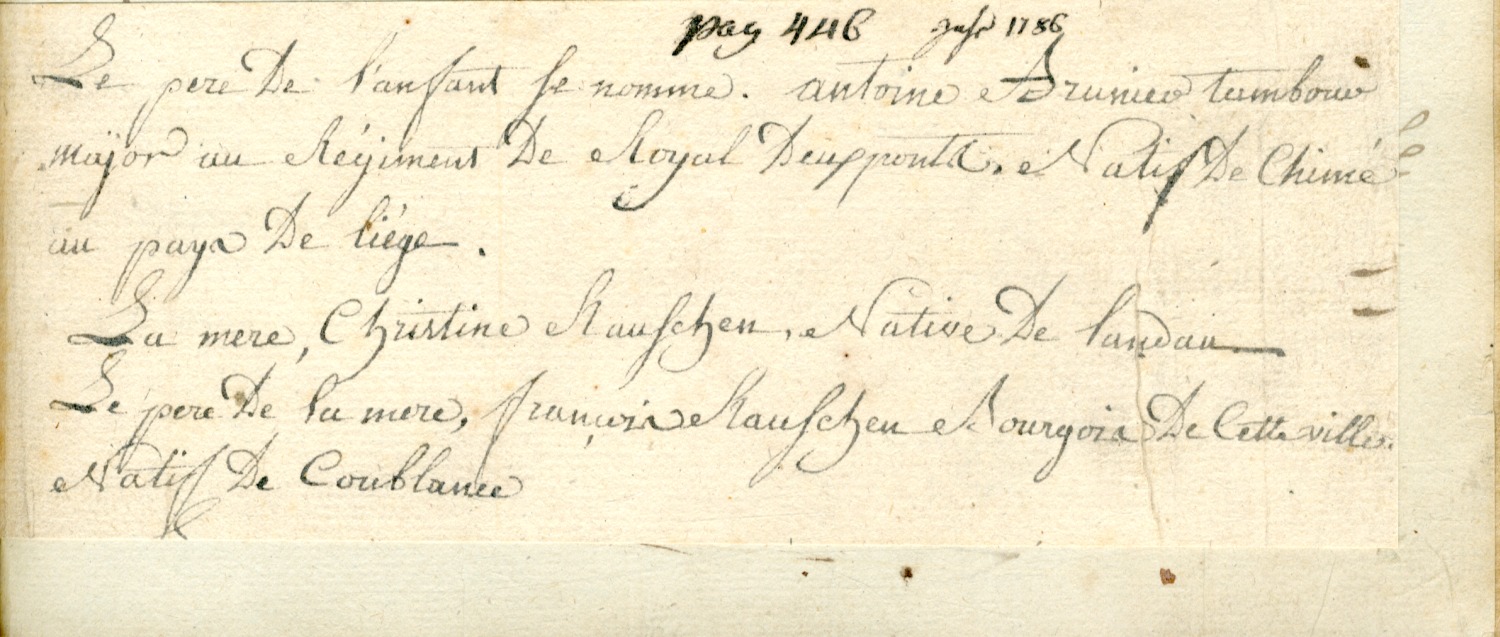 pag 446 1786
Le pere De l'anfant se nomme. antoine Brunier tambour
major au Régiment De Royal Deuxponts. Natif De Chimé
au pays De liége.
La mere, Christine Rauschen, Native De landau
Le pere De la mere, françois Rauschen Bourgois De Cette ville.
Natif De Coublance